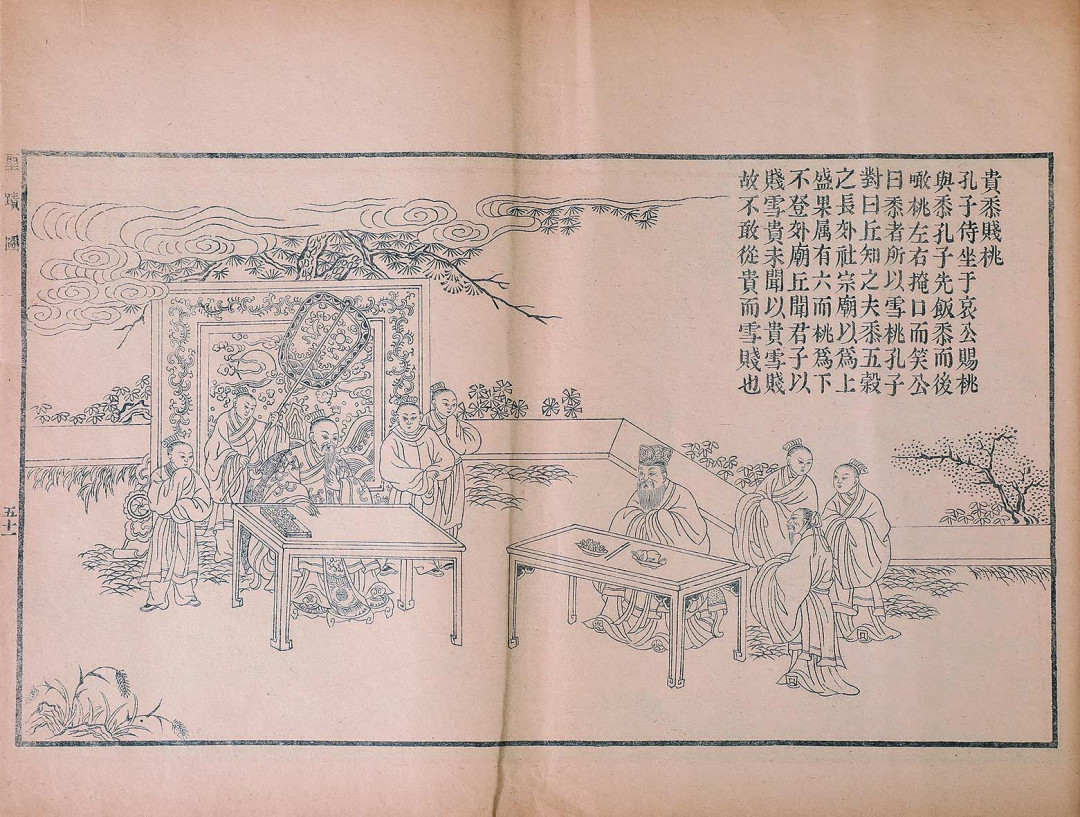 貴黍賤桃
孔子侍坐于哀公賜桃
與黍孔子先飯黍而後
噉桃左右掩口而笑公
曰黍者所以雪桃孔子
對曰丘知之夫黍五穀
之長郊社宗廟以爲上
盛果属有六而桃爲下
不登郊廟丘聞君子以
賤雪貴未聞以貴雪賤
故不敢從貴而雪賤也
聖蹟圖
五十一